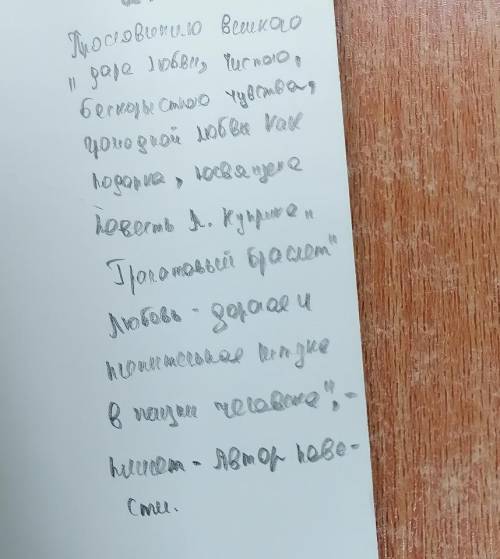 Прославлению великого
"дара любви, чистого,
бескорыстного чувства,
любви как
подарка, посвящена
повесть А. Куприна "
Гранатовый браслет"
Любовь - дорогая и
в жизни человека", -
пишет - Автор пове-
сти.